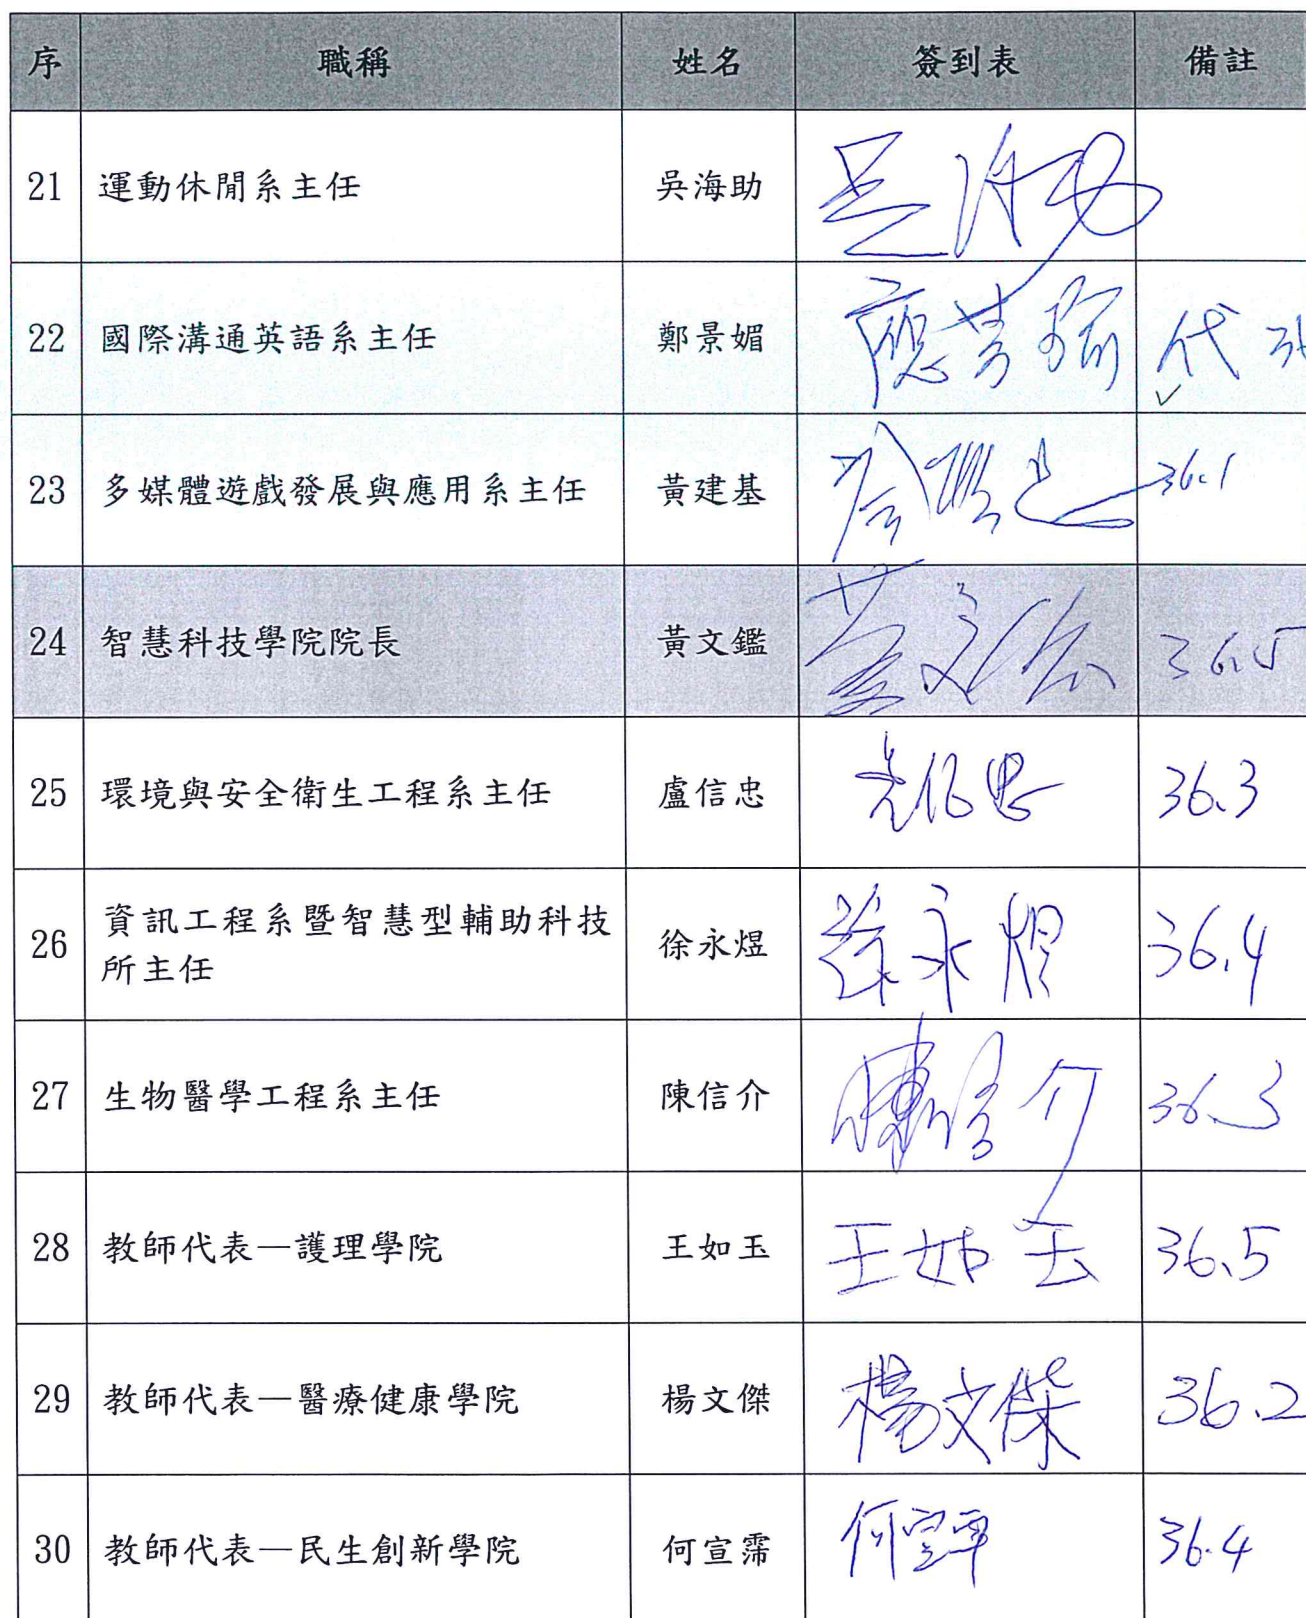 序 職稱 姓名 簽到表 備註
21 運動休閒系主任 吳海助 吳海助
22 國際溝通英語系主任 鄭景媚 代 36
23 多媒體遊戲發展與應用系主任 黃建基 36.1
24 智慧科技學院院長 黃文鑑 36.5
25 環境與安全衛生工程系主任 盧信忠 36.3
26 資訊工程系暨智慧型輔助科技
所主任 徐永煜 36.4
27 生物醫學工程系主任 陳信介 陳信介 36.3
28 教師代表—護理學院 王如玉 王如玉 36.5
29 教師代表—醫療健康學院 楊文傑 楊文傑 36.2
30 教師代表—民生創新學院 何宣霈 36.4